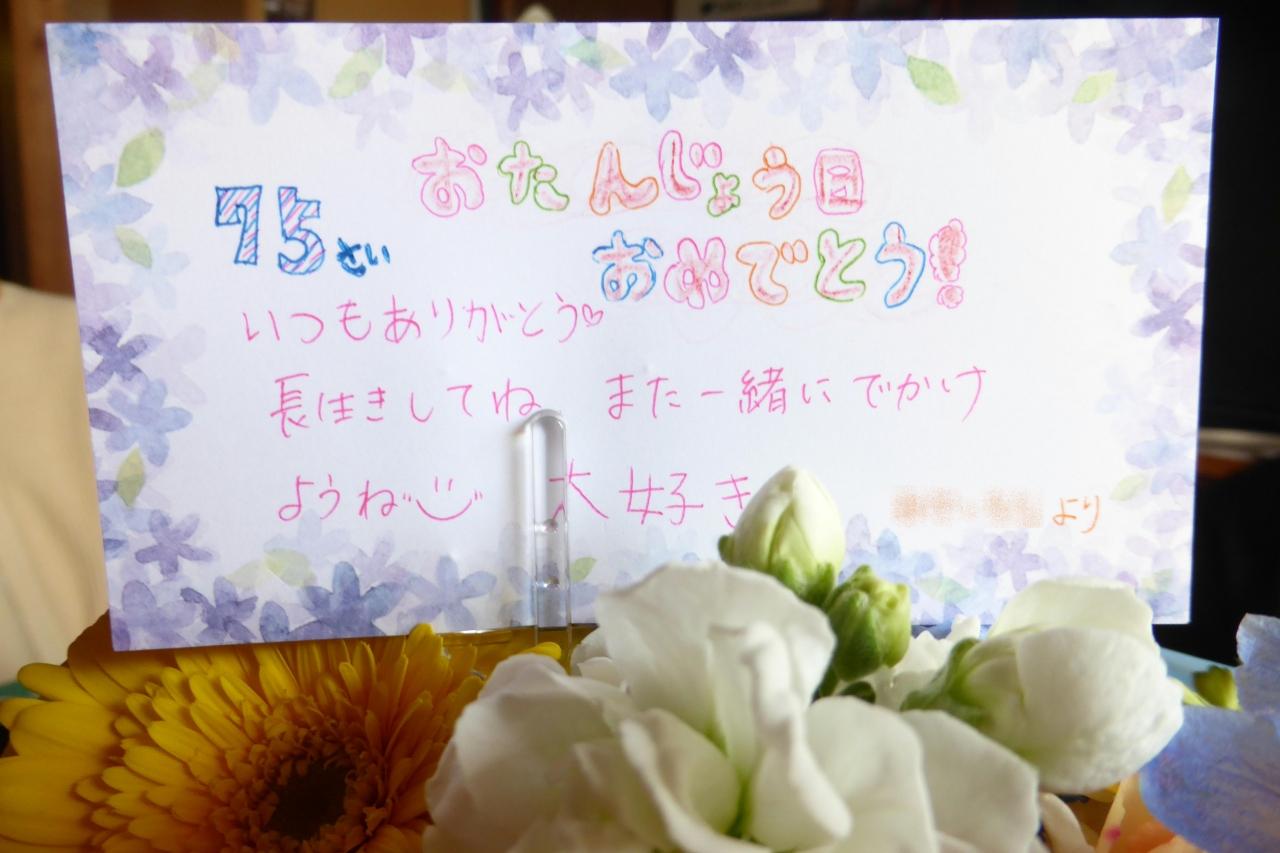 おたんじょう日
75さい
おめでとう!
いつもありがとう♡
長生きしてね また一緒にでかけ
ようね 大好き
より